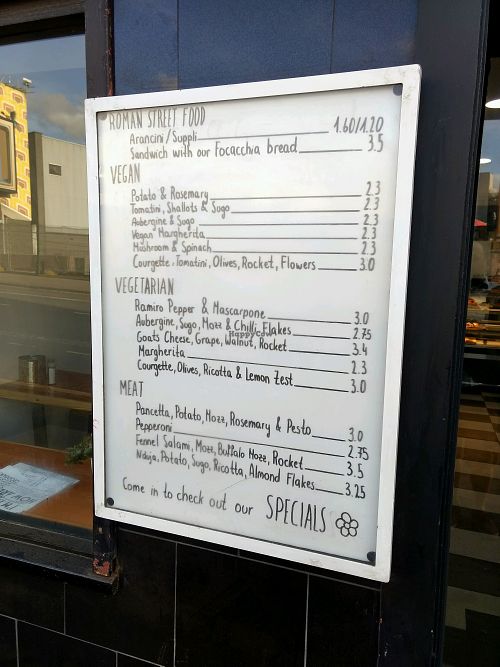 ROMAN STREET FOOD
Arancini/Suppli 1.60/1.20
Sandwich with our Focacchia bread 3.5
VEGAN
Potato & Rosemary 2.3
Tomatini, Shallots & Sugo 2.3
Aubergine & Sugo 2.3
Vegan Margherita 2.3
Mushroom & Spinach 2.3
Courgette, Tomatini, Olives, Rocket, Flowers 3.0
VEGETARIAN
Ramiro Pepper & Mascarpone 3.0
Aubergine, Sugo, Mozz & Chilli Flakes 2.75
Goats Cheese, Grape, Walnut, Rocket 3.4
Margherita 2.3
Courgette, Olives, Ricotta & Lemon Zest 3.0
MEAT
Pancetta, Potato, Mozz, Rosemary & Pesto 3.0
Pepperoni 2.75
Fennel Salami, Mozz, Buffalo Mozz, Rocket 3.5
Nduja, Potato, Sugo, Ricotta, Almond Flakes 3.25
Come in to check out our SPECIALS